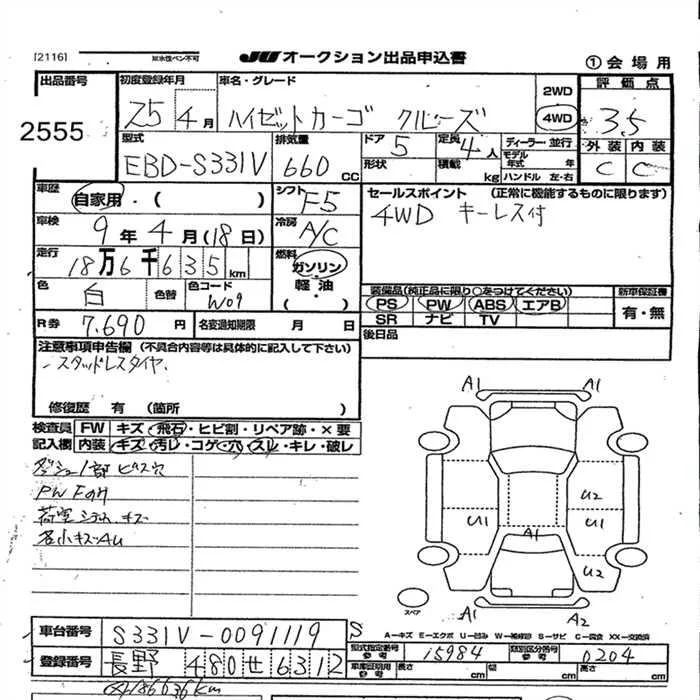 [2116] 耐水性ペン不可 JU オークション出品申込書 ①会場用
出品番号 初度登録年月 車名・グレード 2WD 評価点
2555 25 4月 ハイゼットカーゴ クルーズ 4WD 3.5
型式 排気量 ドア 定員 ディーラー・並行 外装 内装
EBD-S331V 660cc 5 4人 モデル年式 年 C C
形状 積載 kg ハンドル 左・右
車歴 自家用・( ) シフト F5 セールスポイント (正常に機能するものに限ります)
車検 9年4月(18日) 冷房 A/C 4WD キーレス付
走行 18万6千635km 燃料 ガソリン・軽油・( )
色 白 色替 色コード W09 装備品(純正品に限り○をつけてください) 新車保証書
PS PW ABS エアB 有・無
R券 7,690円 名変期限 月 日 SR ナビ TV
注意事項申告欄 (不具合内容等は具体的に記入して下さい) 後日品
・スタッドレスタイヤ
修復歴 有 (箇所 )
検査員 FW キズ・飛石・ヒビ割・リペア跡・×要
記入欄 内装 キズ・汚レ・コゲ・穴・スレ・キレ・破レ
ダッシュ1部ビス穴
PW Fのみ
荷室 キズ
各小キズAU
A1 A1
U2
U1 U1
A1
U2
スペア A1 A2
車台番号 S331V-0091119 S A－キズ E－エクボ U－凹み W－補修跡 S－サビ C－腐食 XX－交換済
登録番号 長野 480 せ 6312 型式指定番号 15984 類別区分番号 0204
車庫証明用参考 長さ cm 幅 cm 高さ cm
186636km